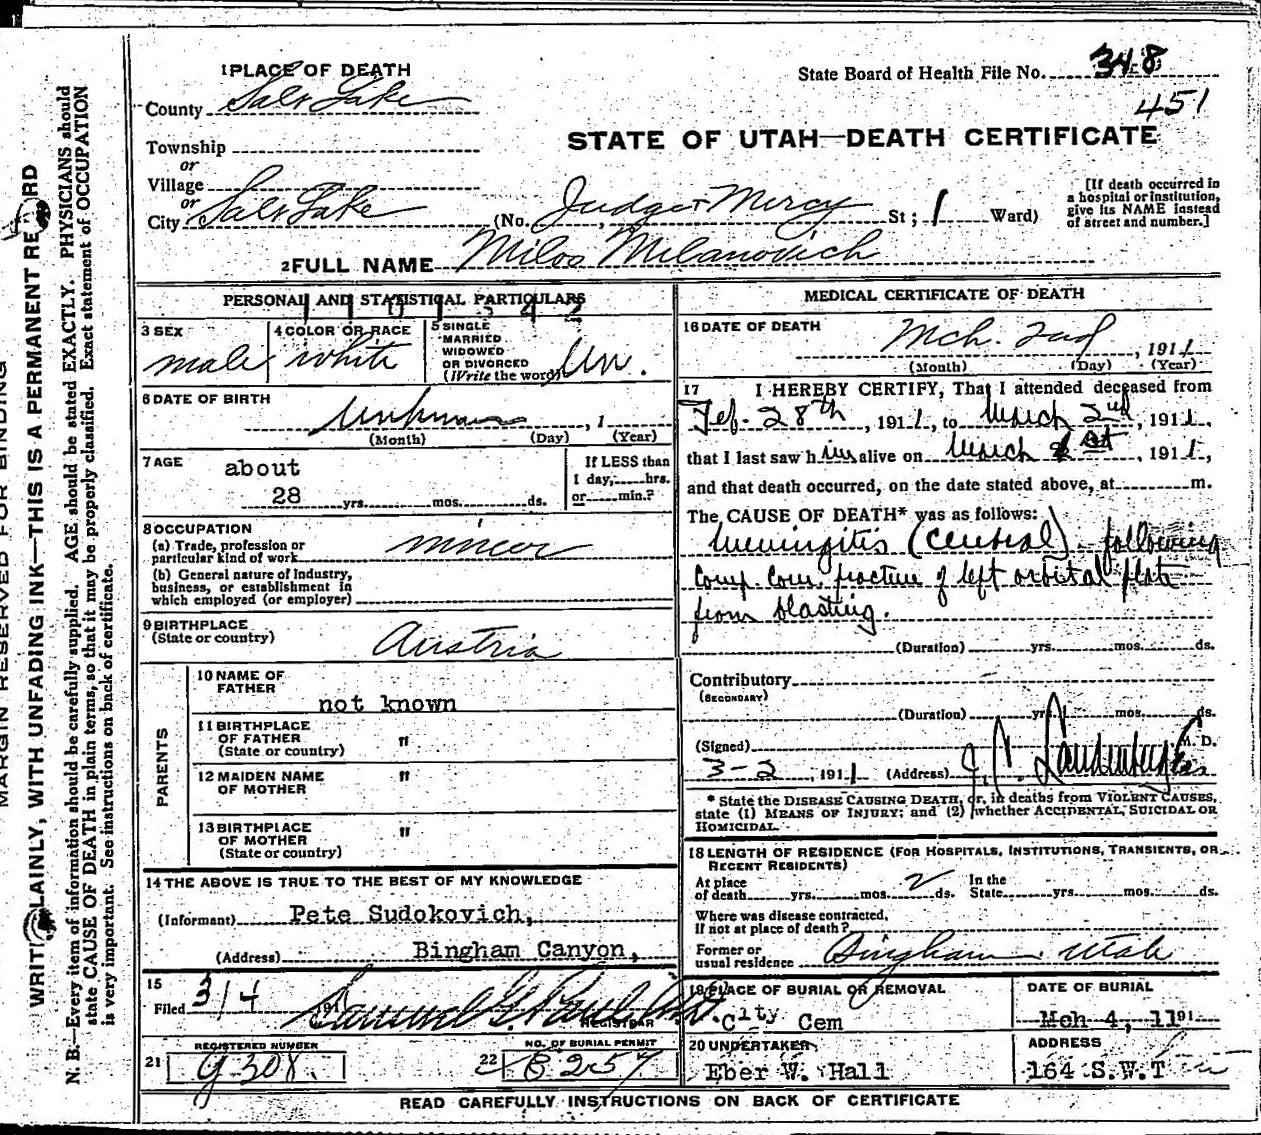 1 PLACE OF DEATH
State Board of Health File No. 348
451
County Salt Lake
STATE OF UTAH—DEATH CERTIFICATE
Township
or
Village
or
City Salt Lake (No. Judge Mercy St; 1 Ward)
[If death occurred in a hospital or institution, give its NAME instead of street and number.]
2 FULL NAME Milos Milanovich
PERSONAL AND STATISTICAL PARTICULARS
3 SEX
male
4 COLOR OR RACE
white
5 SINGLE
MARRIED
WIDOWED
OR DIVORCED
(Write the word) Un.
6 DATE OF BIRTH
Unknown, 1
(Month) (Day) (Year)
7 AGE
about
28 yrs. mos. ds.
If LESS than
1 day, hrs.
or min.?
8 OCCUPATION
(a) Trade, profession or
particular kind of work miner
(b) General nature of industry,
business, or establishment in
which employed (or employer)
9 BIRTHPLACE
(State or country) Austria
PARENTS
10 NAME OF
FATHER
not known
11 BIRTHPLACE
OF FATHER
(State or country) "
12 MAIDEN NAME
OF MOTHER "
13 BIRTHPLACE
OF MOTHER
(State or country) "
14 THE ABOVE IS TRUE TO THE BEST OF MY KNOWLEDGE
(Informant) Pete Sudokovich,
(Address) Bingham Canyon,
15
Filed 3/4 191 Samuel G. Paul
REGISTRAR
REGISTERED NUMBER
21 G 308.
NO. OF BURIAL PERMIT
22 B 257
MEDICAL CERTIFICATE OF DEATH
16 DATE OF DEATH
Mch. 2nd, 1911
(Month) (Day) (Year)
17 I HEREBY CERTIFY, That I attended deceased from
Feb. 28th, 1911, to March 2nd, 1911,
that I last saw him alive on March 1st, 1911,
and that death occurred, on the date stated above, at m.
The CAUSE OF DEATH* was as follows:
Meningitis (Cerebral) following
Comp. Com. fracture of left orbital plate
from blasting.
(Duration) yrs. mos. ds.
Contributory
(SECONDARY)
(Duration) yrs. mos. ds.
(Signed) M. D.
3-2, 1911 (Address)
* State the DISEASE CAUSING DEATH, or, in deaths from VIOLENT CAUSES,
state (1) MEANS OF INJURY; and (2) whether ACCIDENTAL, SUICIDAL OR
HOMICIDAL.
18 LENGTH OF RESIDENCE (FOR HOSPITALS, INSTITUTIONS, TRANSIENTS, OR
RECENT RESIDENTS)
At place
of death yrs. mos. 2 ds.
In the
State yrs. mos. ds.
Where was disease contracted,
if not at place of death?
Former or
usual residence Bingham Utah
19 PLACE OF BURIAL OR REMOVAL
City Cem
DATE OF BURIAL
Mch 4, 11 191
20 UNDERTAKER
Eber W. Hall
ADDRESS
164 S.W.T
READ CAREFULLY INSTRUCTIONS ON BACK OF CERTIFICATE
MARGIN RESERVED FOR BINDING
WRITE PLAINLY, WITH UNFADING INK—THIS IS A PERMANENT RECORD
N. B.—Every item of information should be carefully supplied. AGE should be stated EXACTLY. PHYSICIANS should
state CAUSE OF DEATH in plain terms, so that it may be properly classified. Exact statement of OCCUPATION
is very important. See instructions on back of certificate.